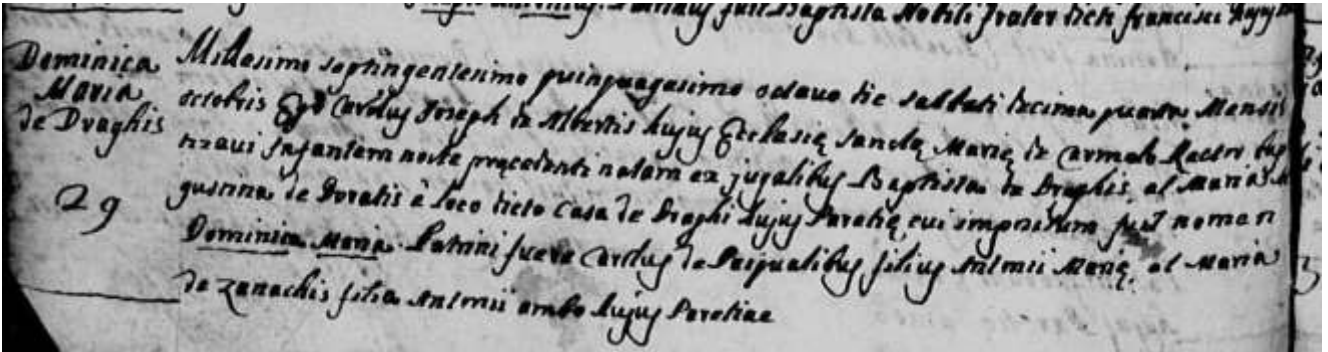 Baptista Nobili frater dicti francisci hujus
Dominica
Maria
de Draghis
29
Millesimo septingentesimo quinquagesimo octavo die sabbati decima quarta Mensis
octobris Ego Carolus Joseph de Albertis hujus Ecclesię sanctę Marię de Rector bap
tizavi Infantem nocte pręcedenti natam ex jugalibus Baptista de Draghis, et Maria
gustina de è loco dicto Casa de Draghi hujus Paroeię cui impositum fuit nomen
Dominica Maria. Patrini fuere Carolus de Pasqualibus filius Antonii Marię, et Maria
de Zanachis filia Antonii ambo hujus Paroeiae